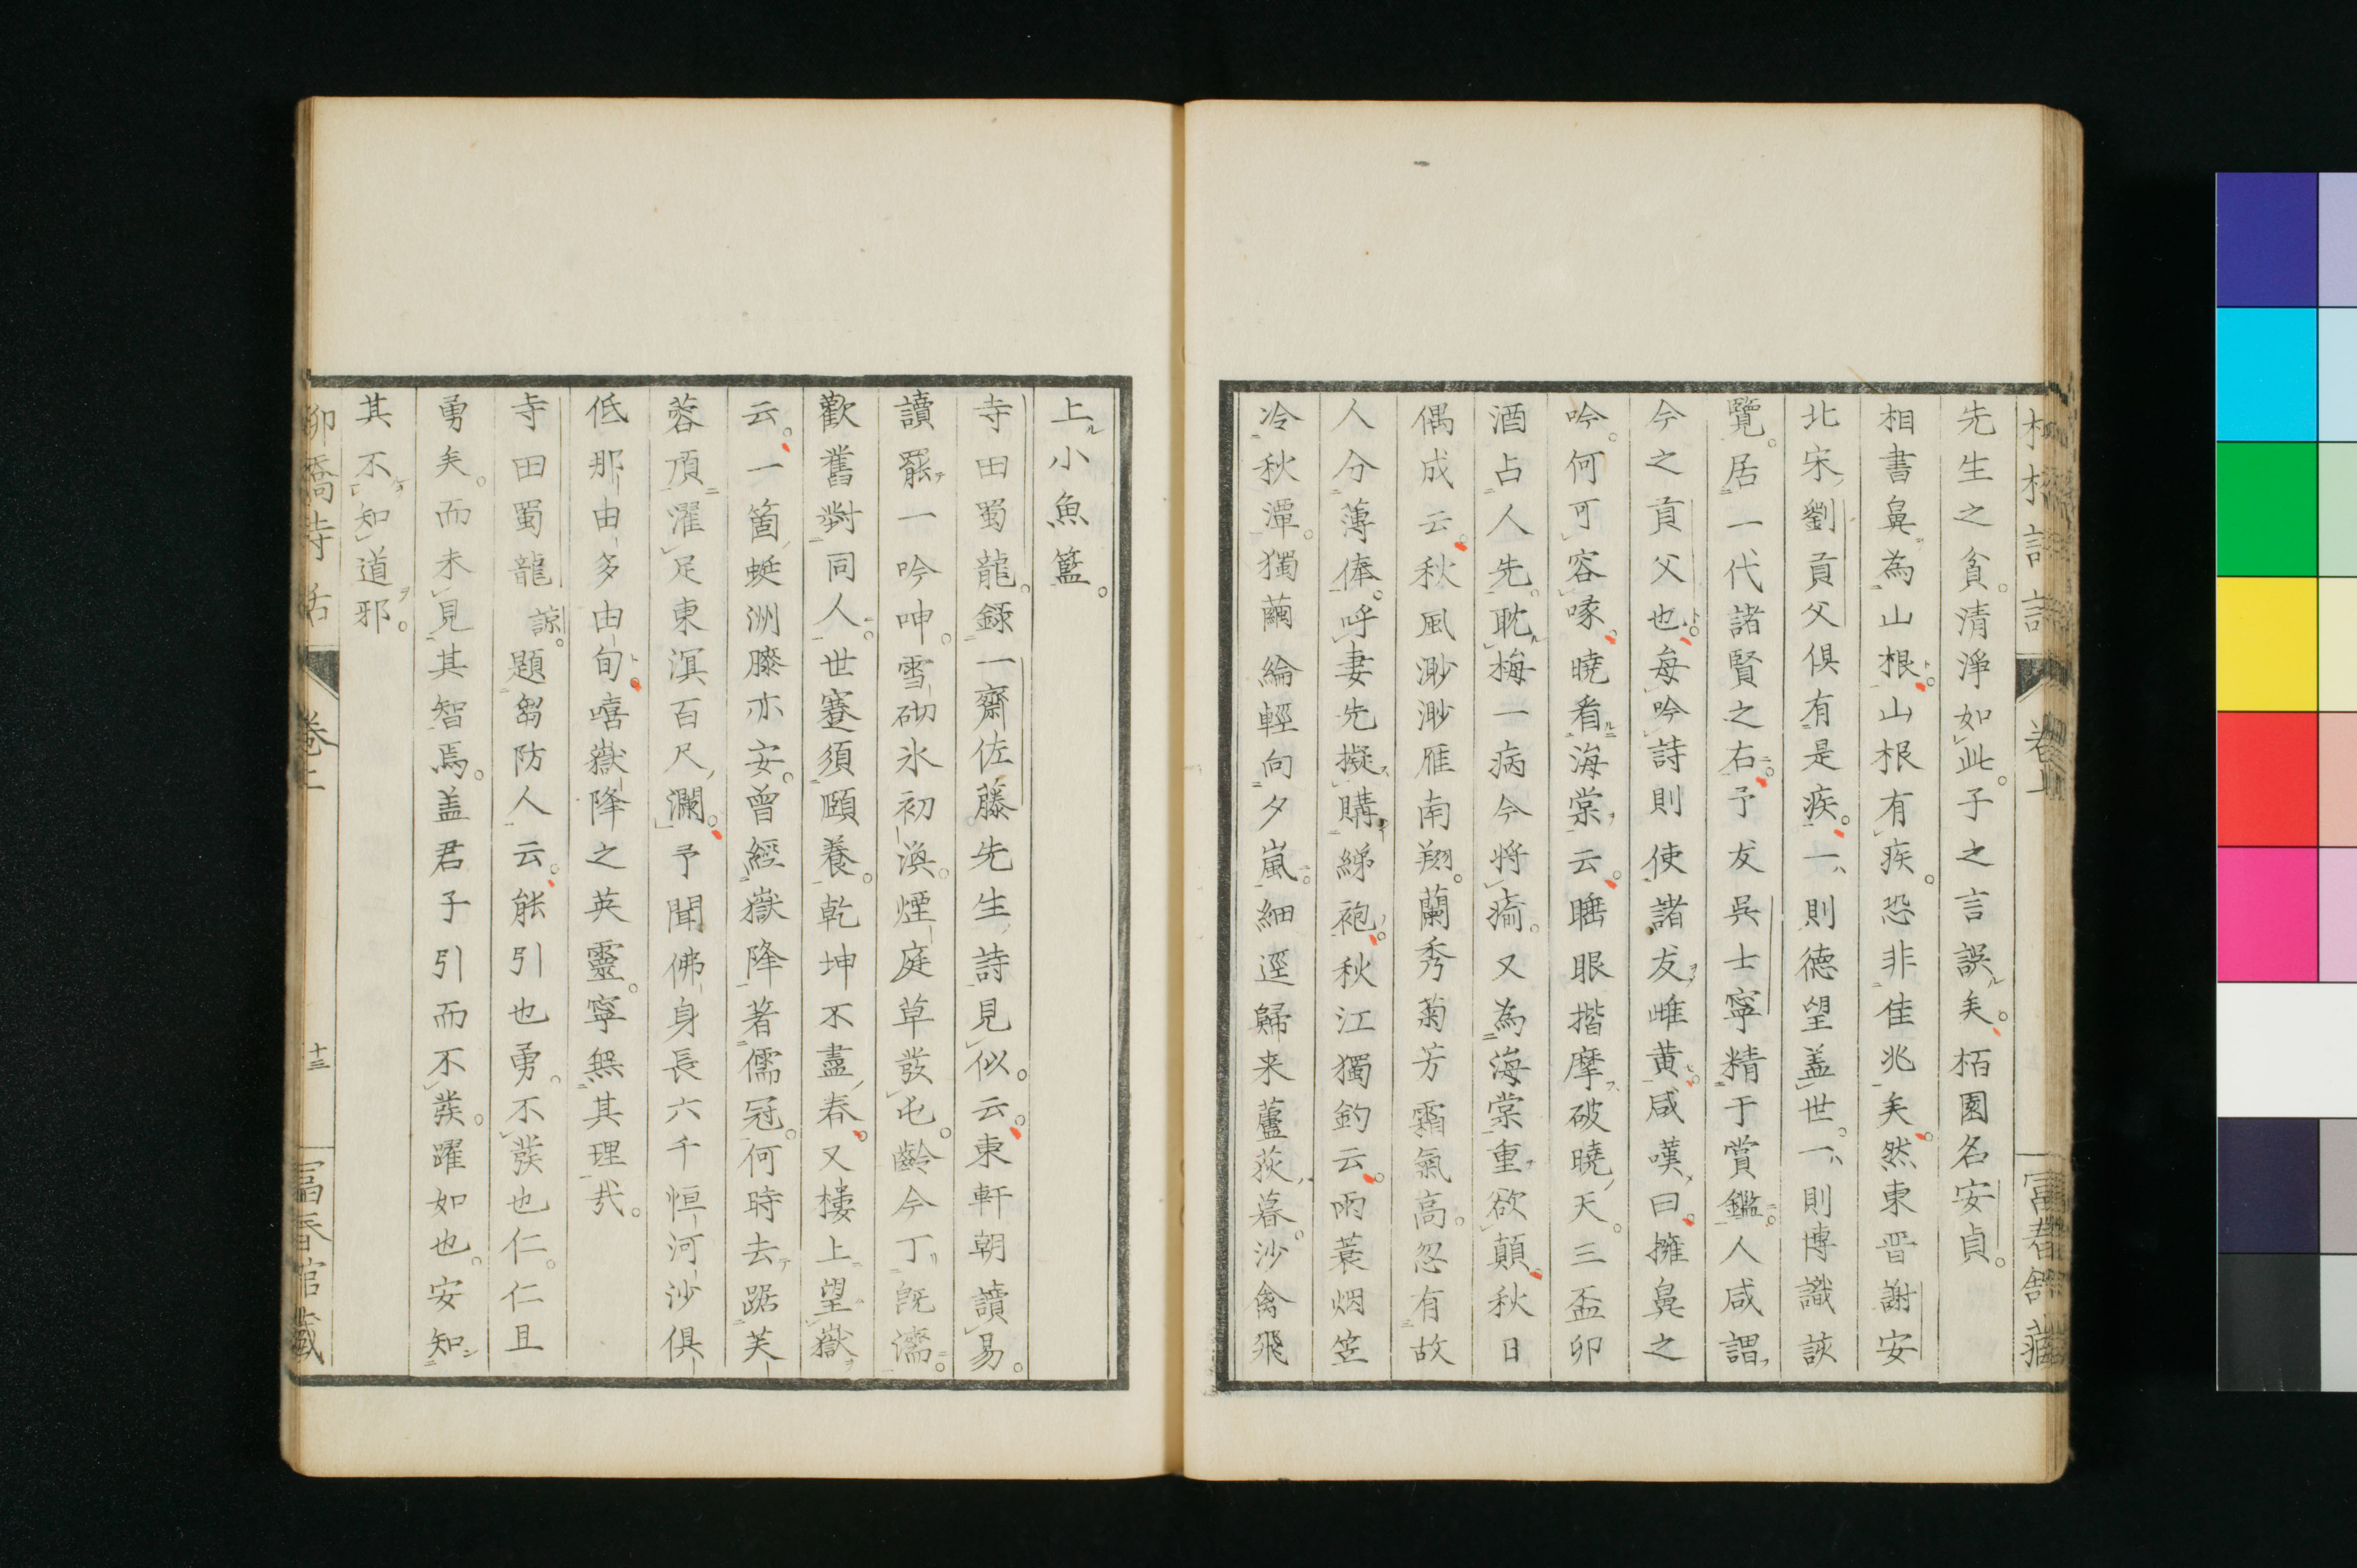 先生之貧清淨如此子之言誤矣栢園名安貞
相書鼻為山根山根有疾恐非佳兆矣然東晋謝安
北宋劉貢父俱有是疾一則德望盖世一則博識該
覽居一代諸賢之右予友呉士寧精于賞鑑人咸謂
今之貢父也每吟詩則使諸友雌黄咸嘆曰擁鼻之
吟何可容喙曉看海棠云睡眼揩摩破曉天三盃卯
酒占人先耽梅一病今将痊又為海棠重欲顛秋日
偶成云秋風渺渺雁南翔蘭秀菊芳霜氣高忽有故
人分薄俸呼妻先擬購綈袍秋江獨釣云雨蓑烟笠
冷秋潭獨繭綸輕向夕嵐細逕歸来蘆荻暮沙禽飛
上小魚籃
寺田蜀龍錄一齋佐藤先生詩見似云東軒朝讀易
讀罷一吟呻雪砌氷初渙煙庭草發屯齡今丁既濡
歡舊對同人世蹇須頤養乾坤不盡春又樓上望嶽
云一箇蜓洲滕亦安曽經嶽降著儒冠何時去踞芙
蓉頂濯足東溟百尺瀾予聞佛身長六千恒河沙俱
低那由多由旬嘻嶽降之英靈寧無其理哉
寺田蜀龍諒題芻防人云能引也勇不發也仁仁且
勇矣而未見其智焉盖君子引而不發躍如也安知
其不知道邪
柳橋詩話 卷上 十三 冨春館藏